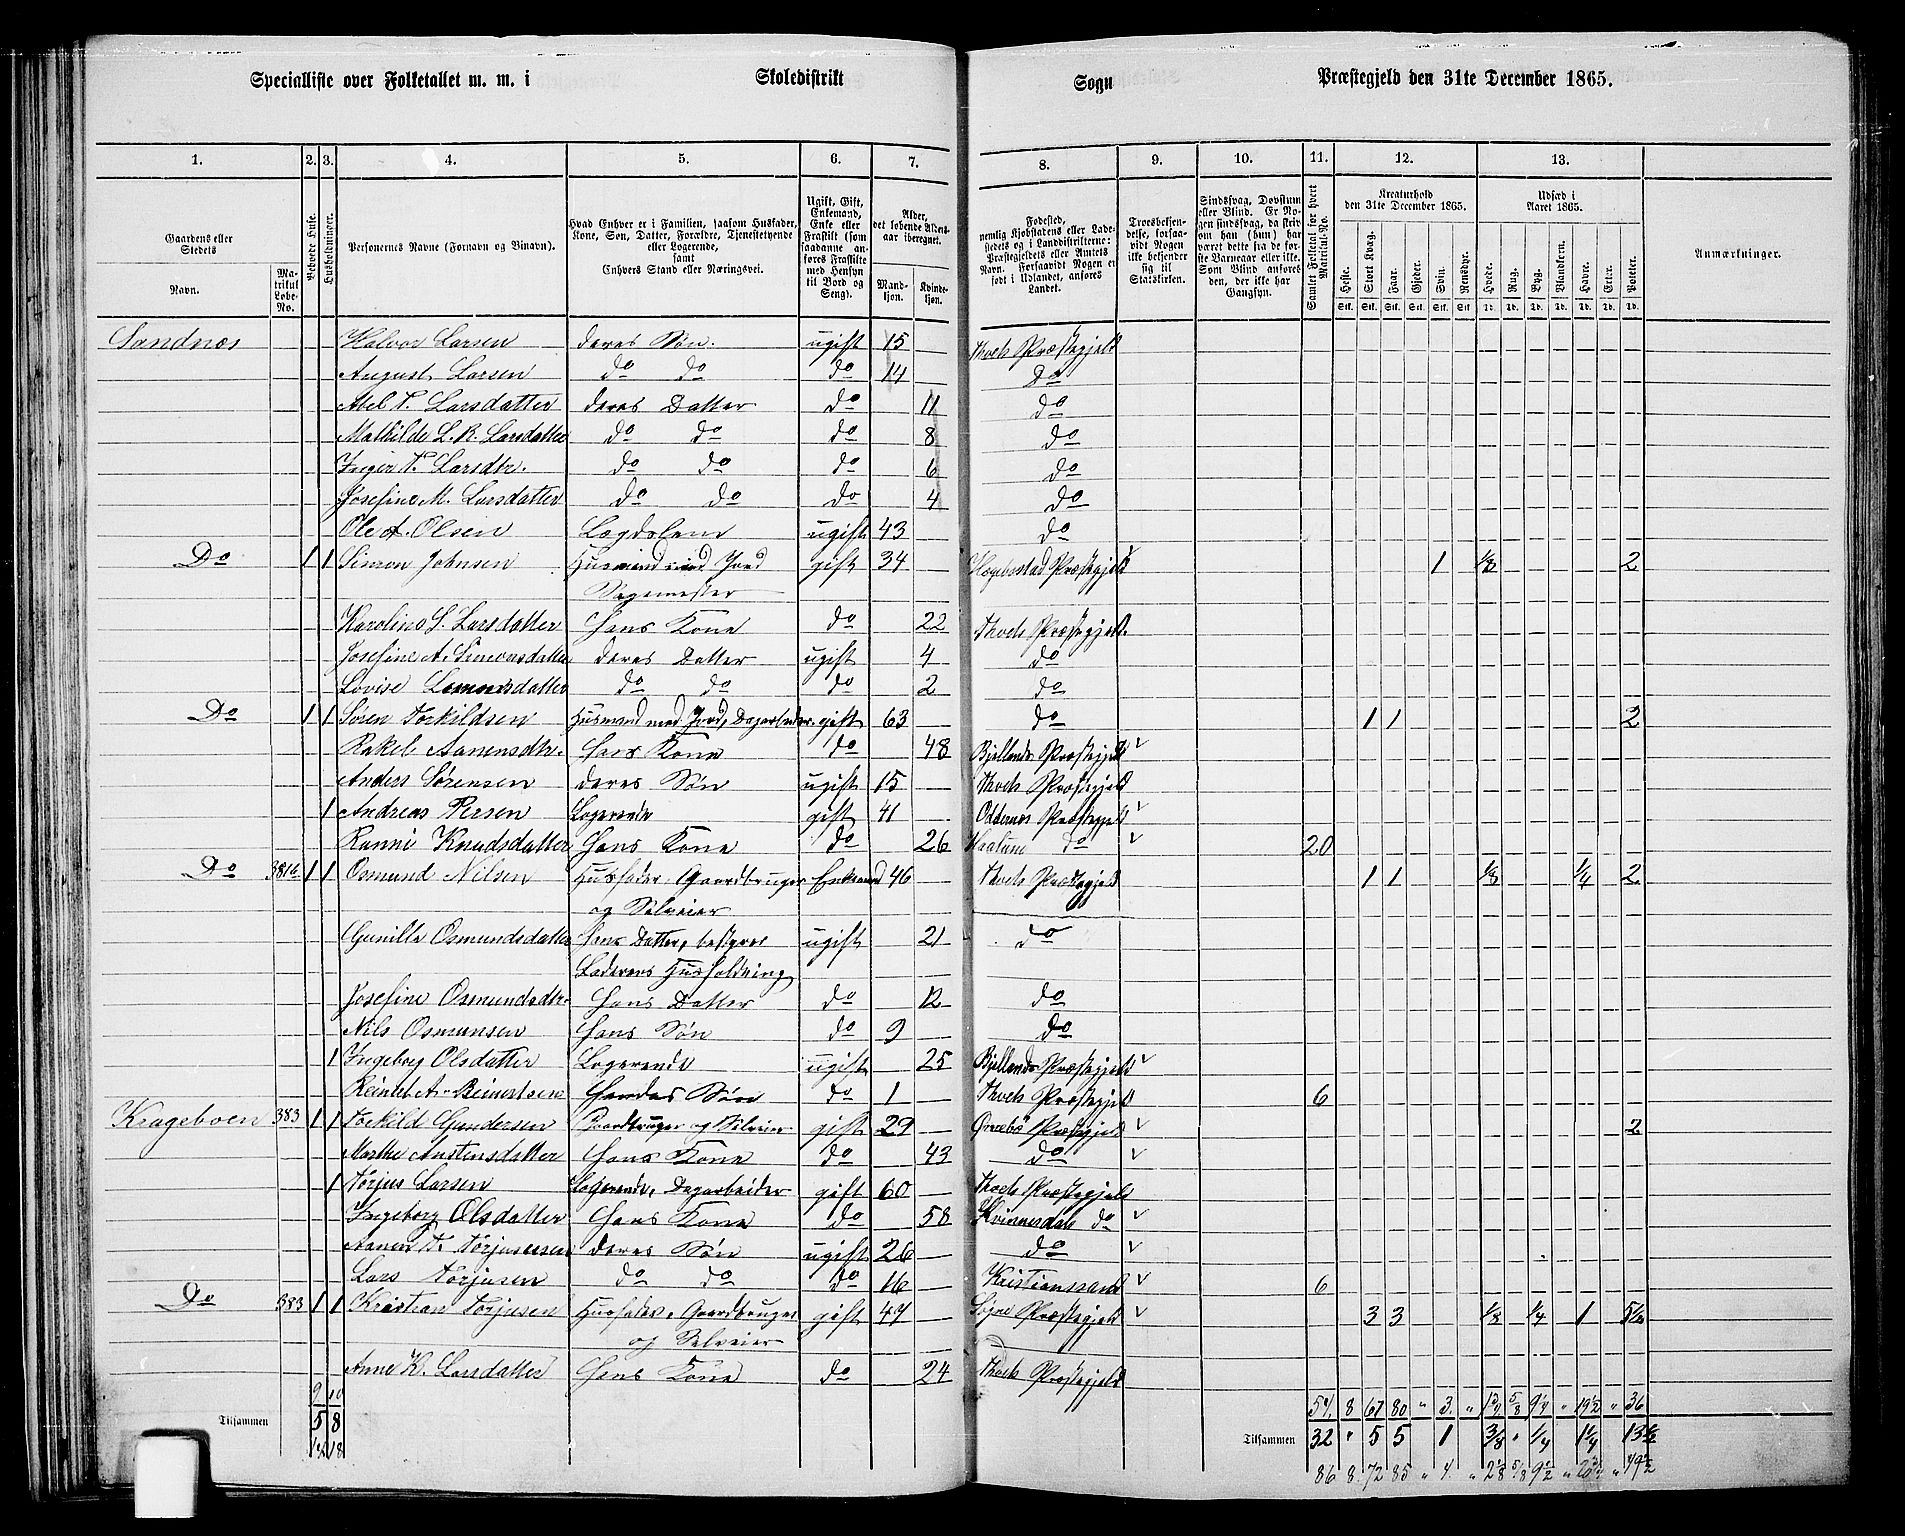 Specialliste over Folketallet m. m. i Skoledistrikt Sogn Præstegjeld den 31te December 1865.
1. 2. 3. 4. 5. 6. 7. 8. 9. 10. 11. 12. 13.
Gaardens eller Stedets Navn. Matrikul Løbe-No. Beboede Huse. Husholdninger. Personernes Navne (Fornavn og Binavn). Hvad Enhver er i Familien, saasom Husfader, Kone, Søn, Datter, Forældre, Tjenestetyende eller Logerende, samt Enhvers Stand eller Næringsvei. Ugift, Gift, Enkemand, Enke eller Fraskilt (som saadanne anføres Fraskilte med Hensyn til Bord og Seng). Alder, det løbende Aldersaar iberegnet. Mandkjøn. Kvindekjøn. Fødested, nemlig Kjøbstadens eller Ladestedets og i Landdistrikterne: Præstegjeldets eller Amtets Navn. Forsaavidt Nogen er født i Udlandet, anføres Landet. Troesbekjendelse, forsaavidt Nogen ikke bekjender sig til Statskirken. Sindssvag, Døvstum eller Blind. Er Nogen sindssvag, da skriv om han (hun) har været dette fra de første Barneaar eller ikke. Som Blind anføres den, der ikke har Gangsyn. Samlet Folketal for hvert Matrikul-No. Kreaturhold den 31te December 1865. Heste. Stort Kvæg. Faar. Gjeder. Sviin. Rensdyr. Udsæd i Aaret 1865. Hvede. Rug. Byg. Blandkorn. Havre. Erter. Poteter. Anmærkninger.
Sandnæs Halvor Larsen deres Søn. ugift 15 Præstegjeld
August Larsen do do do 14 Do
Abel T. Larsdatter deres Datter do 11 do
Mathilde L. R. Larsdatter do do do 8 do
Inger T. Larsdtr. do do do 6 do
Josefine M. Larsdatter do do do 4 do
Ole A. Olsen Lægdslem ugift 43 do
Do 1 1 Simon Johnsen Husmand med Jord gift 34 Hægebostad Præstegjeld 1 1/8 2
Sagmester
Karoline S. Larsdatter Hans Kone do 22 Præstegjeld.
Josefine A. Simonsdatter deres Datter ugift 4 do
Lovise Simonsdatter do do do 2 do
Do 1 1 Søren Torkildsen Husmand med Jord, Dagarbeider gift 63 do 1 1 2
Rakel Aanensdtr. Hans Kone do 48 Bjellands Præstegjeld
Anders Sørensen deres Søn ugift 15 Præstegjeld
1 Andreas Persen Logerende gift 41 Oddernes Præstegjeld
Ranni Knudsdatter Hans Kone do 26 Haalund do 20
Do 381b 1 1 Osmund Nilsen Husfader, Gaardbruger Enkemand 46 Præstegjeld 1 1 1/8 1/4 2
og Selveier
Gunille Osmundsdatter Hans Datter, bestyrer ugift 21 do
Faderens Husholdning
Josefine Osmundsdtr. Hans Datter do 12 do
Nils Osmunsen Hans Søn do 9 do
1 Ingeborg Olsdatter Logerende ugift 25 Bjellands Præstegjeld
Reinert A. Reinertsen Hendes Søn do 1 Præstegjeld 6
Krageboen 383 1 1 Torkild Gundersen Gaardbruger og Selveier gift 29 Øvrebø Præstegjeld 2
Marthe Austensdatter Hans Kone do 43 do
1 Tørjus Larsen Logerende, Dagarbeider gift 60 Præstegjeld
Ingeborg Olsdatter Hans Kone do 58 Kvinnesdal do
Aanen T. Tørjussen deres Søn ugift 26 do
Lars Tørjusen do do do 16 Kristianssand 6
Do 383 1 1 Kristian Tørjusen Husfader, Gaardbruger gift 47 Søgne Præstegjeld 3 3 1/8 1/4 1
og Selveier
Anne K. Larsdatter Hans Kone do 24 Præstegjeld
9 10 54 8 67 80 " 3. " 5/8 " 19 1/2 " 36
Tilsammen 5 8 Tilsammen 32 " 5 5 1 3/8 " 1/4 1 1/4
18 86 8 72 85 " 4. " 2 1/8 5/8 9 1/2 "